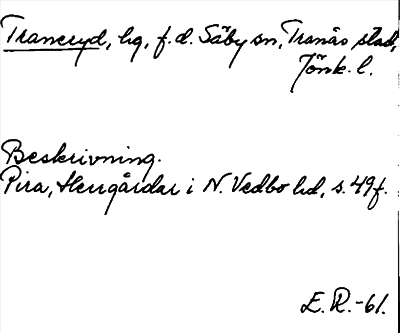 Traneryd, hg, f.d. Säby sn, Tranås stad,
Jönk. l.
Beskrivning.
Pira, Herrgårdar i N. Vedbo hd, s. 49f.
E. R. -61.